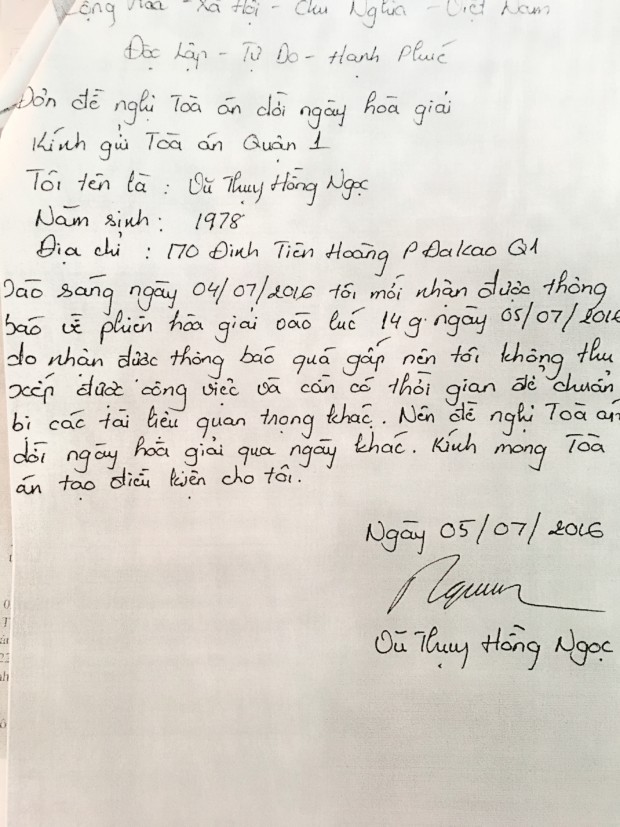 Cộng Hòa - Xã Hội - Chủ Nghĩa - Việt Nam
Độc Lập - Tự Do - Hạnh Phúc
Đơn đề nghị Toà án dời ngày hoà giải
Kính gửi Toà án Quận 1
Tôi tên là : Vũ Thụy Hồng Ngọc
Năm sinh : 1978
Địa chỉ : 170 Đinh Tiên Hoàng P Đakao Q1
Vào sáng ngày 04/07/2016 tôi mới nhận được thông
báo về phiên hòa giải vào lúc 14g. ngày 05/07/2016
do nhận được thông báo quá gấp nên tôi không thu
xếp được công việc và cần có thời gian để chuẩn
bị các tài liệu quan trọng khác. Nên đề nghị Toà án
dời ngày hoà giải qua ngày khác. Kính mong Toà
án tạo điều kiện cho tôi.
Ngày 05/07/2016
Vũ Thụy Hồng Ngọc